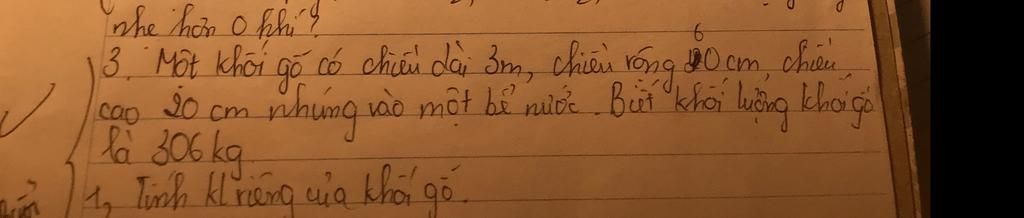 nhẹ hơn 0 khí?
3. Một khối gỗ có chiều dài 3m, chiều rộng 60 cm, chiều
cao 20 cm nhúng vào một bể nước. Biết khối lượng khối gỗ
là 306 kg
1, Tính kl riêng của khối gỗ.